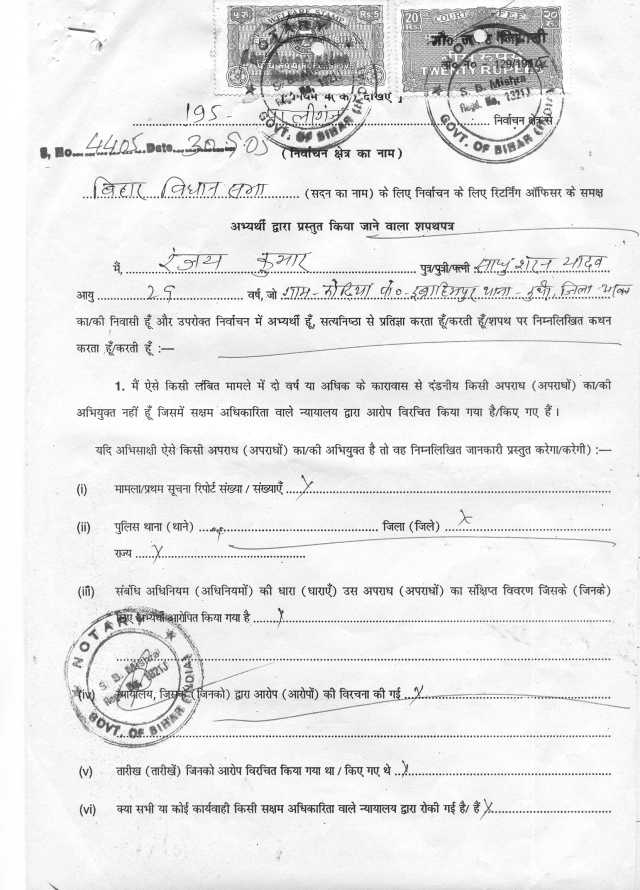 Rs.5
COURT
20 Rs
TWENTY RUPEES
NOTARY
S. B. Mishra
Regd. No. 1321J
GOVT. OF BIHAR (INDIA)
NOTARY
S. B. Mishra
Regd. No. 1321J
GOVT. OF BIHAR (INDIA)
देखिए ]
195- निर्वाचन क्षेत्र से
S. No. 4405 Date 30.9.05
(निर्वाचन क्षेत्र का नाम)
बिहार विधान सभा (सदन का नाम) के लिए निर्वाचन के लिए रिटर्निंग ऑफिसर के समक्ष
अभ्यर्थी द्वारा प्रस्तुत किया जाने वाला शपथपत्र
मैं, रंजय कुमार पुत्र/पुत्री/पत्नी साधु शरन यादव
आयु 29 वर्ष, जो ग्राम- पो०- इब्राहिमपुर थाना- जिला
का/की निवासी हूँ और उपरोक्त निर्वाचन में अभ्यर्थी हूँ, सत्यनिष्ठा से प्रतिज्ञा करता हूँ/करती हूँ/शपथ पर निम्नलिखित कथन
करता हूँ/करती हूँ :—
1. मैं ऐसे किसी लंबित मामले में दो वर्ष या अधिक के कारावास से दंडनीय किसी अपराध (अपराधों) का/की
अभियुक्त नहीं हूँ जिसमें सक्षम अधिकारिता वाले न्यायालय द्वारा आरोप विरचित किया गया है/किए गए हैं ।
यदि अभिसाक्षी ऐसे किसी अपराध (अपराधों) का/की अभियुक्त है तो वह निम्नलिखित जानकारी प्रस्तुत करेगा/करेगी) :—
(i) मामला/प्रथम सूचना रिपोर्ट संख्या / संख्याएँ X
(ii) पुलिस थाना (थाने) जिला (जिले) X
राज्य X
(iii) संबंधि अधिनियम (अधिनियमों) की धारा (धाराएँ) उस अपराध (अपराधों) का संक्षिप्त विवरण जिसके (जिनके)
लिए अभ्यर्थी आरोपित किया गया है X
NOTARY
S. B. Mishra
Regd. No. 1321J
GOVT. OF BIHAR (INDIA)
(iv) न्यायालय, जिसके (जिनको) द्वारा आरोप (आरोपों) की विरचना की गई X
(v) तारीख (तारीखें) जिनको आरोप विरचित किया गया था / किए गए थे X
(vi) क्या सभी या कोई कार्यवाही किसी सक्षम अधिकारिता वाले न्यायालय द्वारा रोकी गई है/ हैं X